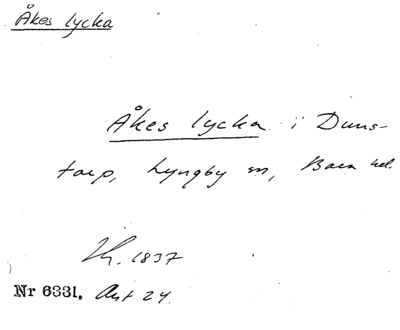 Åkes lycka
Åkes lycka i Duns-
torp, Lyngby sn, Bara hd.
1837
Nr 6331. Akt 24.